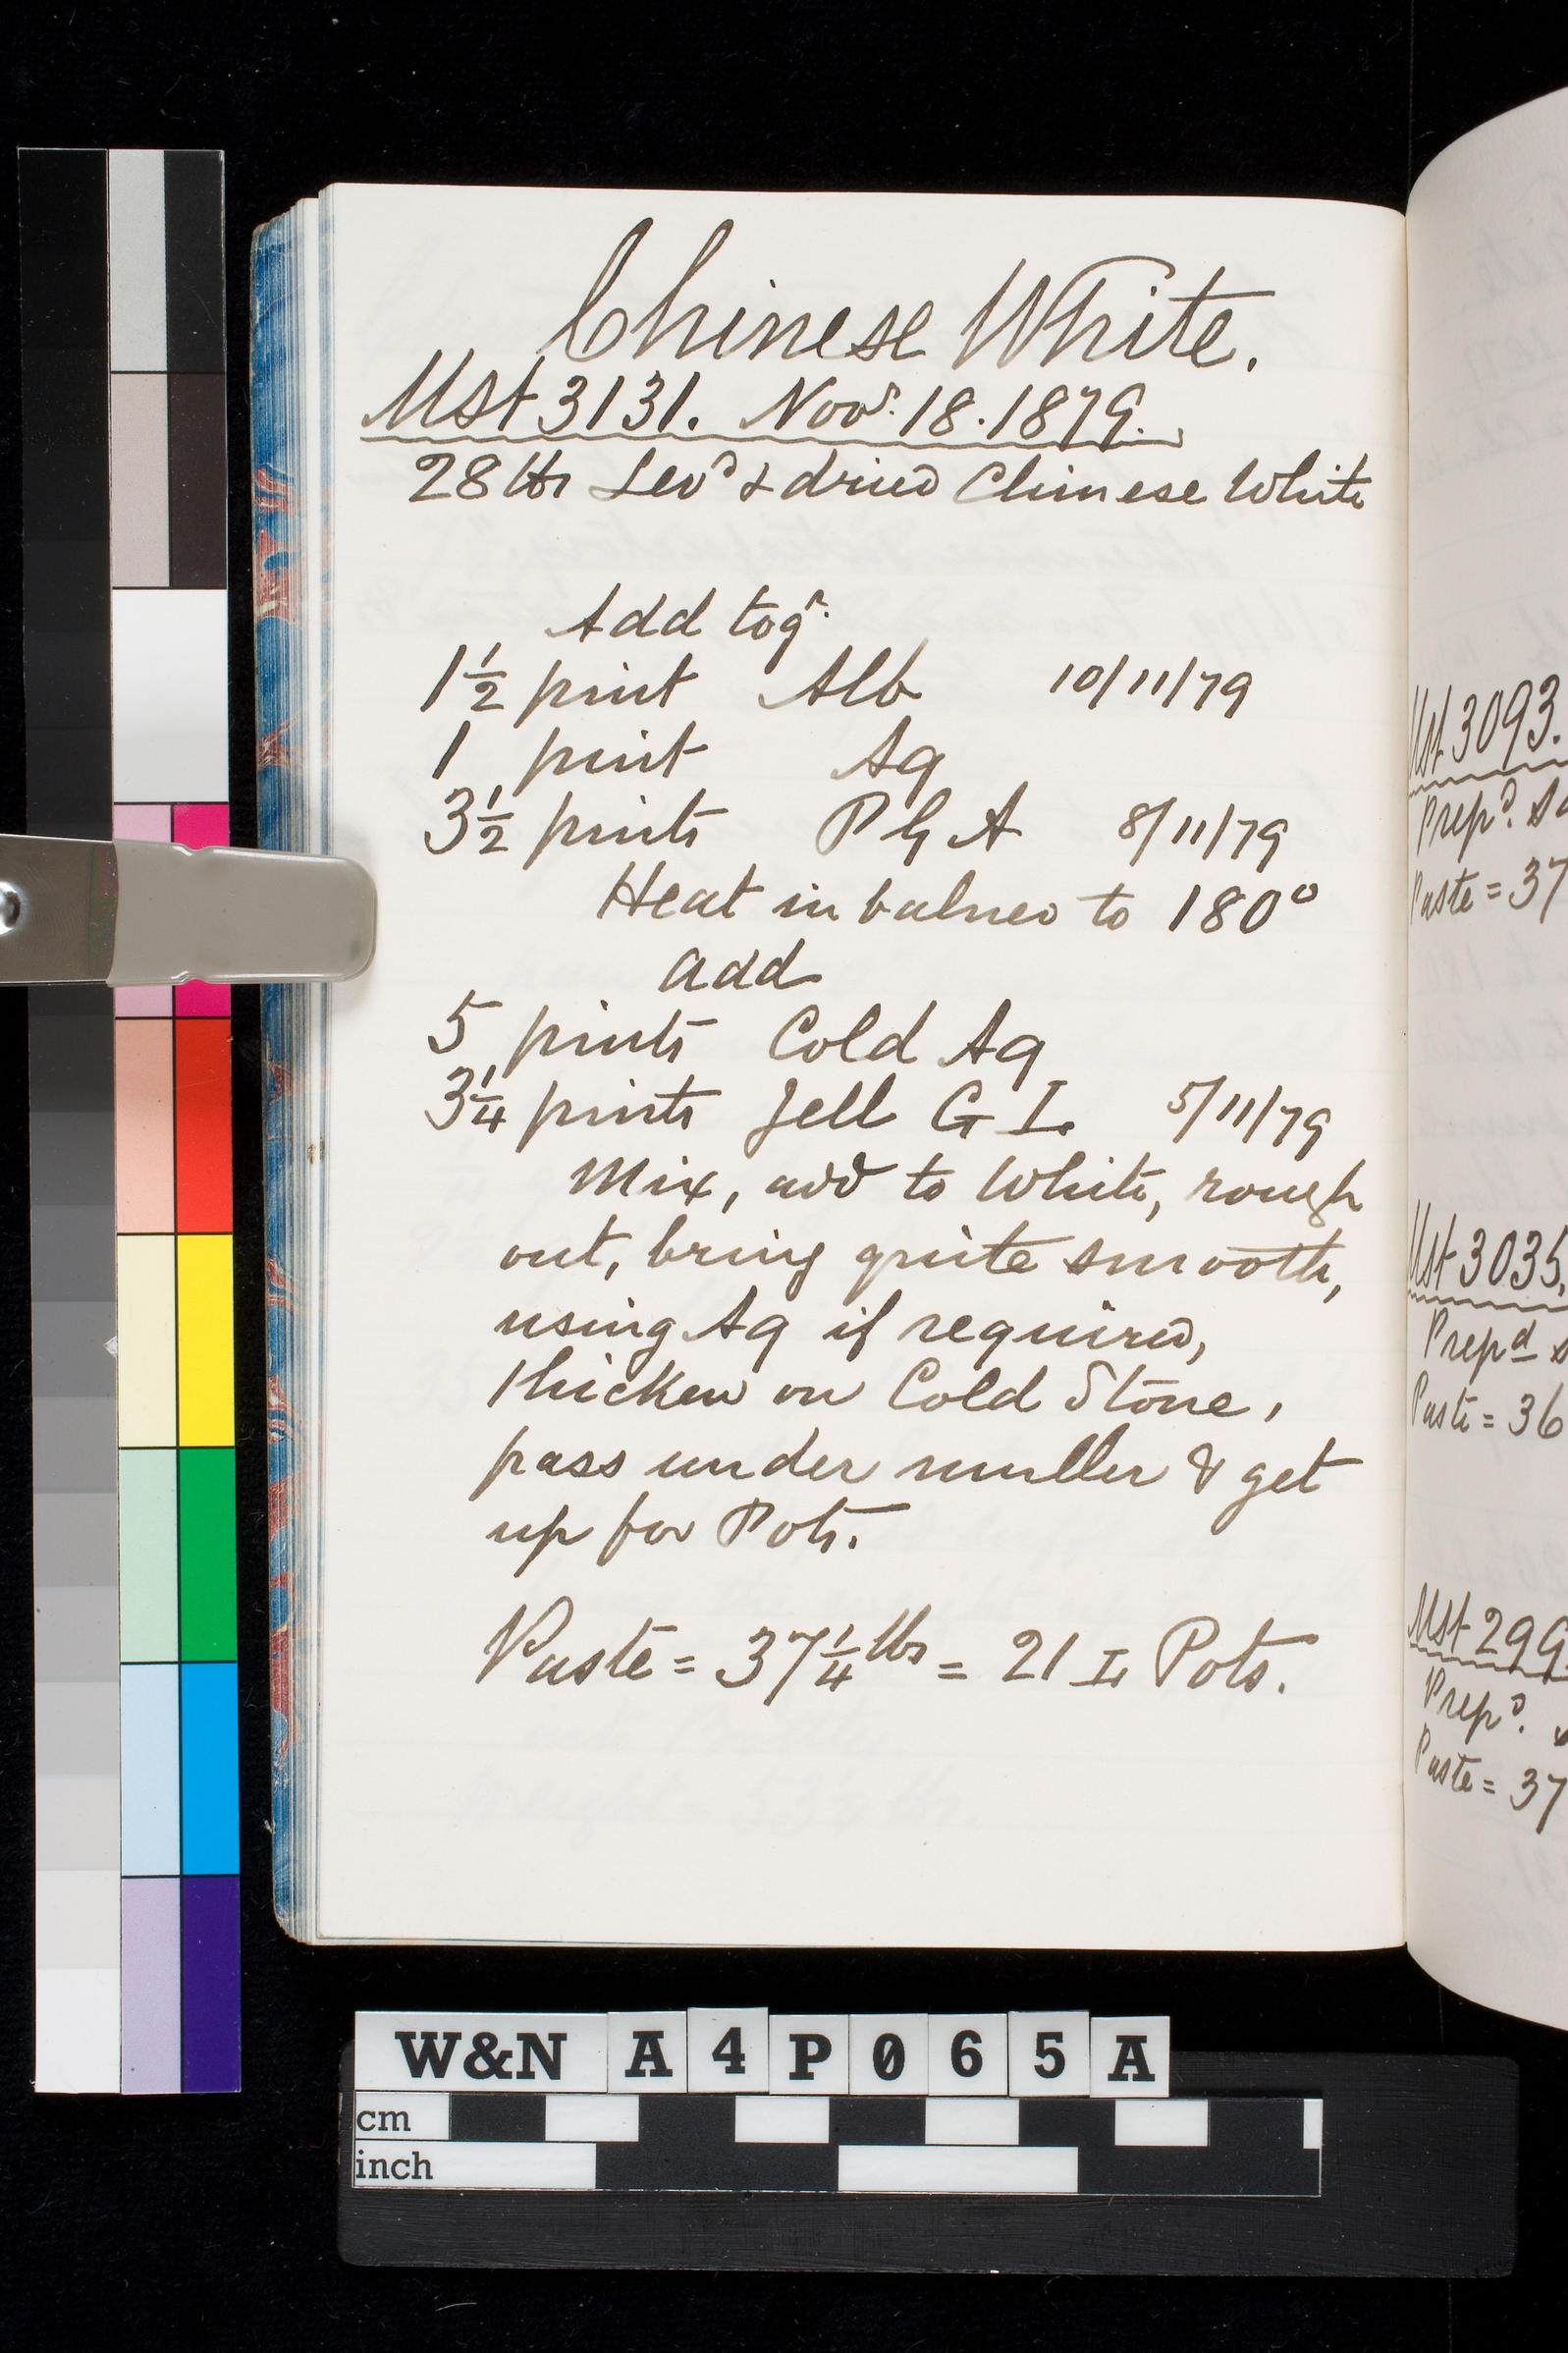 Chinese White.
Mst 3131. Novr. 18. 1879.
28 lbs Levd & dried Chinese White
Add togr.
1½ pint Alb 10/11/79
1 pint Aq
3½ pints P G A 8/11/79
Heat in balneo to 180°
add
5 pints Cold Aq
3¼ pints Jell G I. 5/11/79
Mix, add to White, rough
out, bring quite smooth,
using Aq if required,
thicken on Cold Stone,
pass under muller & get
up for Pots.
Paste = 37¼ lbs = 21 I. Pots.
Mst 3093.
Prepd.
Paste = 37
Mst 3035.
Prepd
Paste = 36
Mst 299
Prepd.
Paste = 37
W&N A4P065A
cm
inch